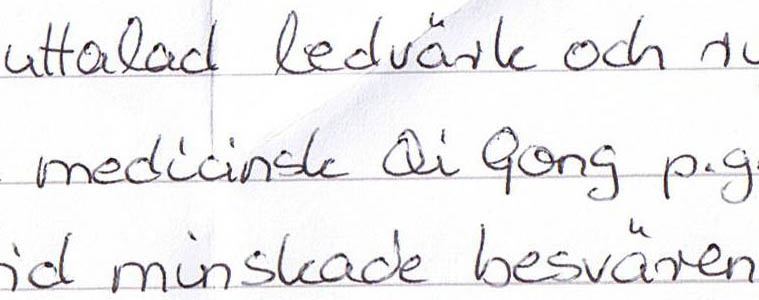 uttalad ledvärk och
medicinsk Qi Gong p.g.
minskade besvären